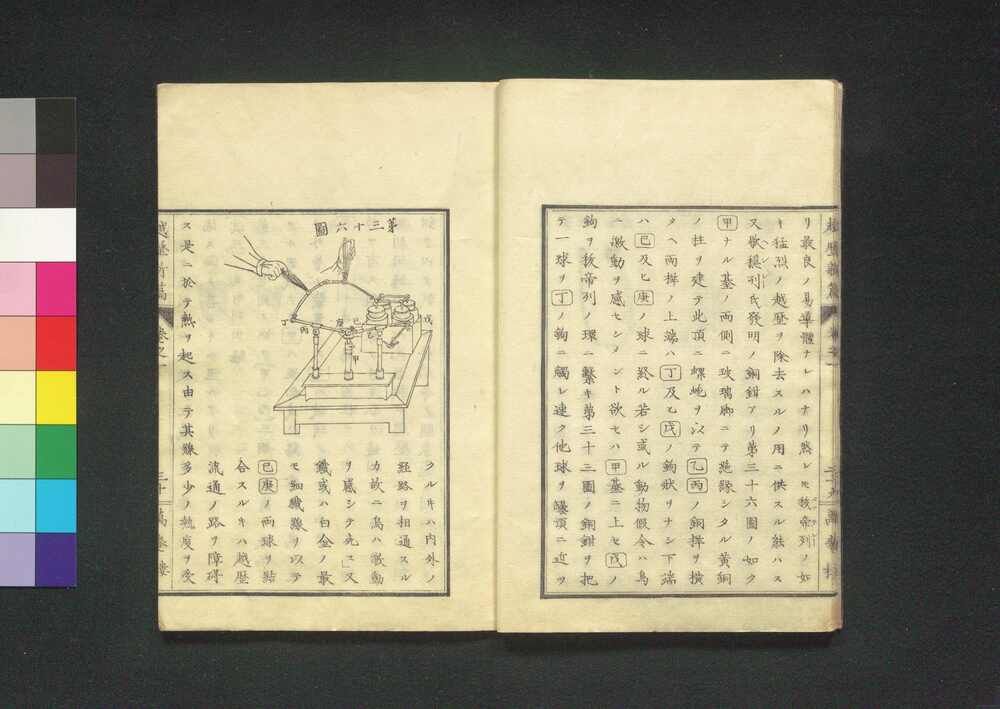 リ最良ノ易導體ナレハナリ然レモ核帝列ノ如
キ猛烈ノ越歴ヲ除去スルノ用ニ供スル能ハス
又歇摁列氏發明ノ銅鉗アリ第三十六圖ノ如ク
甲ナル基ノ兩側ニ玻璃脚ニテ絶縁シタル黄銅
ノ柱ヲ建テ此頂ニ螺蛳ヲ以テ乙丙ノ銅桿ヲ横
タヘ兩桿ノ上端ハ丁及ヒ戊ノ鉤狀ヲナシ下端
ハ己及ヒ庚ノ球ニ終ル若シ或ル動物假令ハ鳥
ニ激動ヲ感セシメント欲セハ甲基ニ上セ戊ノ
鉤ヲ核帝列ノ環ニ繋キ第三十三圖ノ銅鉗ヲ把
テ一球ヲ丁ノ鉤ニ觸レ速ク他球ヲ罎頂ニ近ツ
第三十六圖
丁
丙
庚
己
乙
戊
甲
クルキハ内外ノ
經路ヲ相通スル
カ故ニ鳥ハ激動
ヲ感シテ死ス」又
鐵或ハ白金ノ最
モ細纖線ヲ以テ
己庚ノ兩球ヲ結
合スルキハ越歴
流通ノ路ヲ障碍
ス是ニ於テ熱ヲ起ス由テ其線多少ノ熱度ヲ受
卷之一
三十